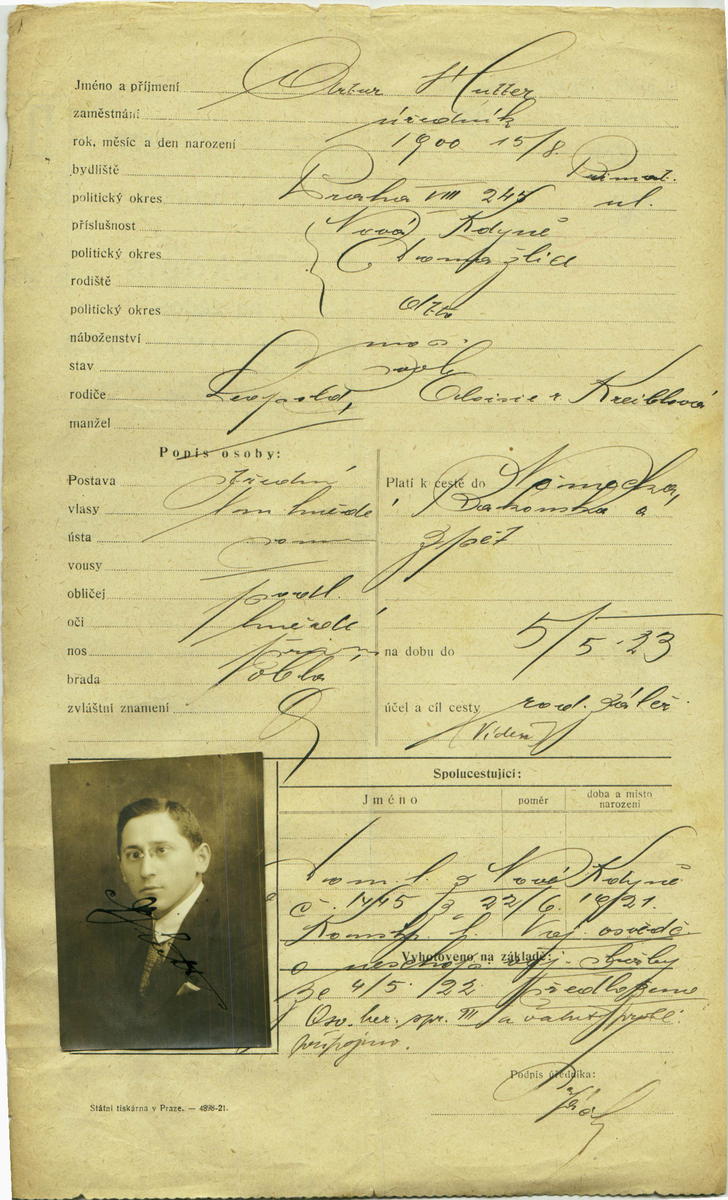 Jméno a příjmení Artur Hutter
zaměstnání úředník
rok, měsíc a den narození 1900 15/8.
bydliště
politický okres Praha VIII 247 ul.
příslušnost Nová Kdyně
politický okres Domažlice
rodiště
politický okres dtto
náboženství mos.
stav svob.
rodiče Leopold, r. Kreiblová
manžel
Popis osoby:
Postava střední
vlasy tm hnědé
ústa
vousy
obličej podl.
oči hnědé
nos
brada oblá
zvláštní znamení
Platí k cestě do Německa,
Rakouska a
zpět
na dobu do 5/5.23
účel a cíl cesty rod. zálež.
(Vídeň)
Spolucestující:
Jméno poměr doba a místo narození
Dom. l. z Nové Kdyně
č. 1445 z 22/6. 1921.
Vyhotoveno na základě:
ze 4/5. 22 předloženo
Osv. ber. spr. III a
připojeno.
Podpis úředníka:
Státní tiskárna v Praze. — 4898-21.